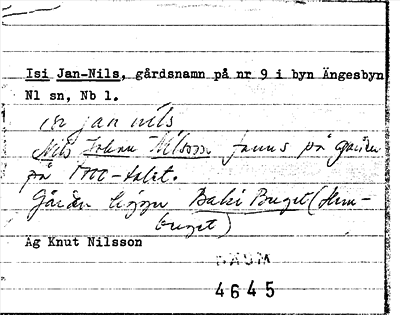 Isi Jan-Nils, gårdsnamn på nr 9 i byn Ängesbyn
Nl sn, Nb l.
isi jan nils
Nils Johan Nilsson fanns på gården
på 1700-talet.
Gården ligger Baki Buget (Hem-
buget)
Äg Knut Nilsson
DAUM
4645